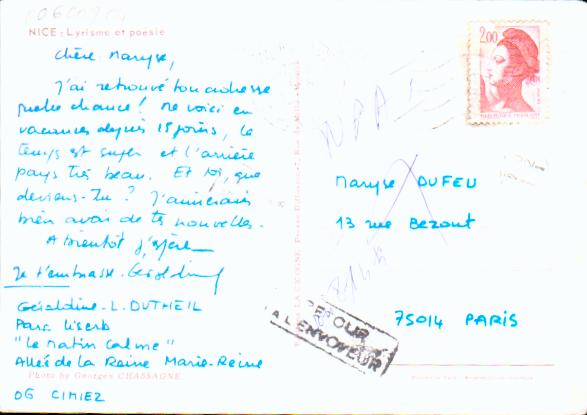 NICE : Lyrisme et poésie
Chère Maryse,
J'ai retrouvé ton adresse
quelle chance ! Me voici en
vacances depuis 15 jours, le
temps est super et l'arrière
pays très beau. Et toi, que
deviens-tu ? J'aimerais
bien avoir de tes nouvelles.
A bientôt j'espère
Je t'embrasse. Géraldine
Géraldine. L. DUTHEIL
Parc Liserb
"Le Matin Calme"
Allée de la Reine Marie-Reine
06 CIMIEZ
Photo by Georges CHASSAGNE
2,00
NPAI
Maryse DUFEU
13 rue Bezout
75014 PARIS
RETOUR
A L'ENVOYEUR
LA CIGOGNE